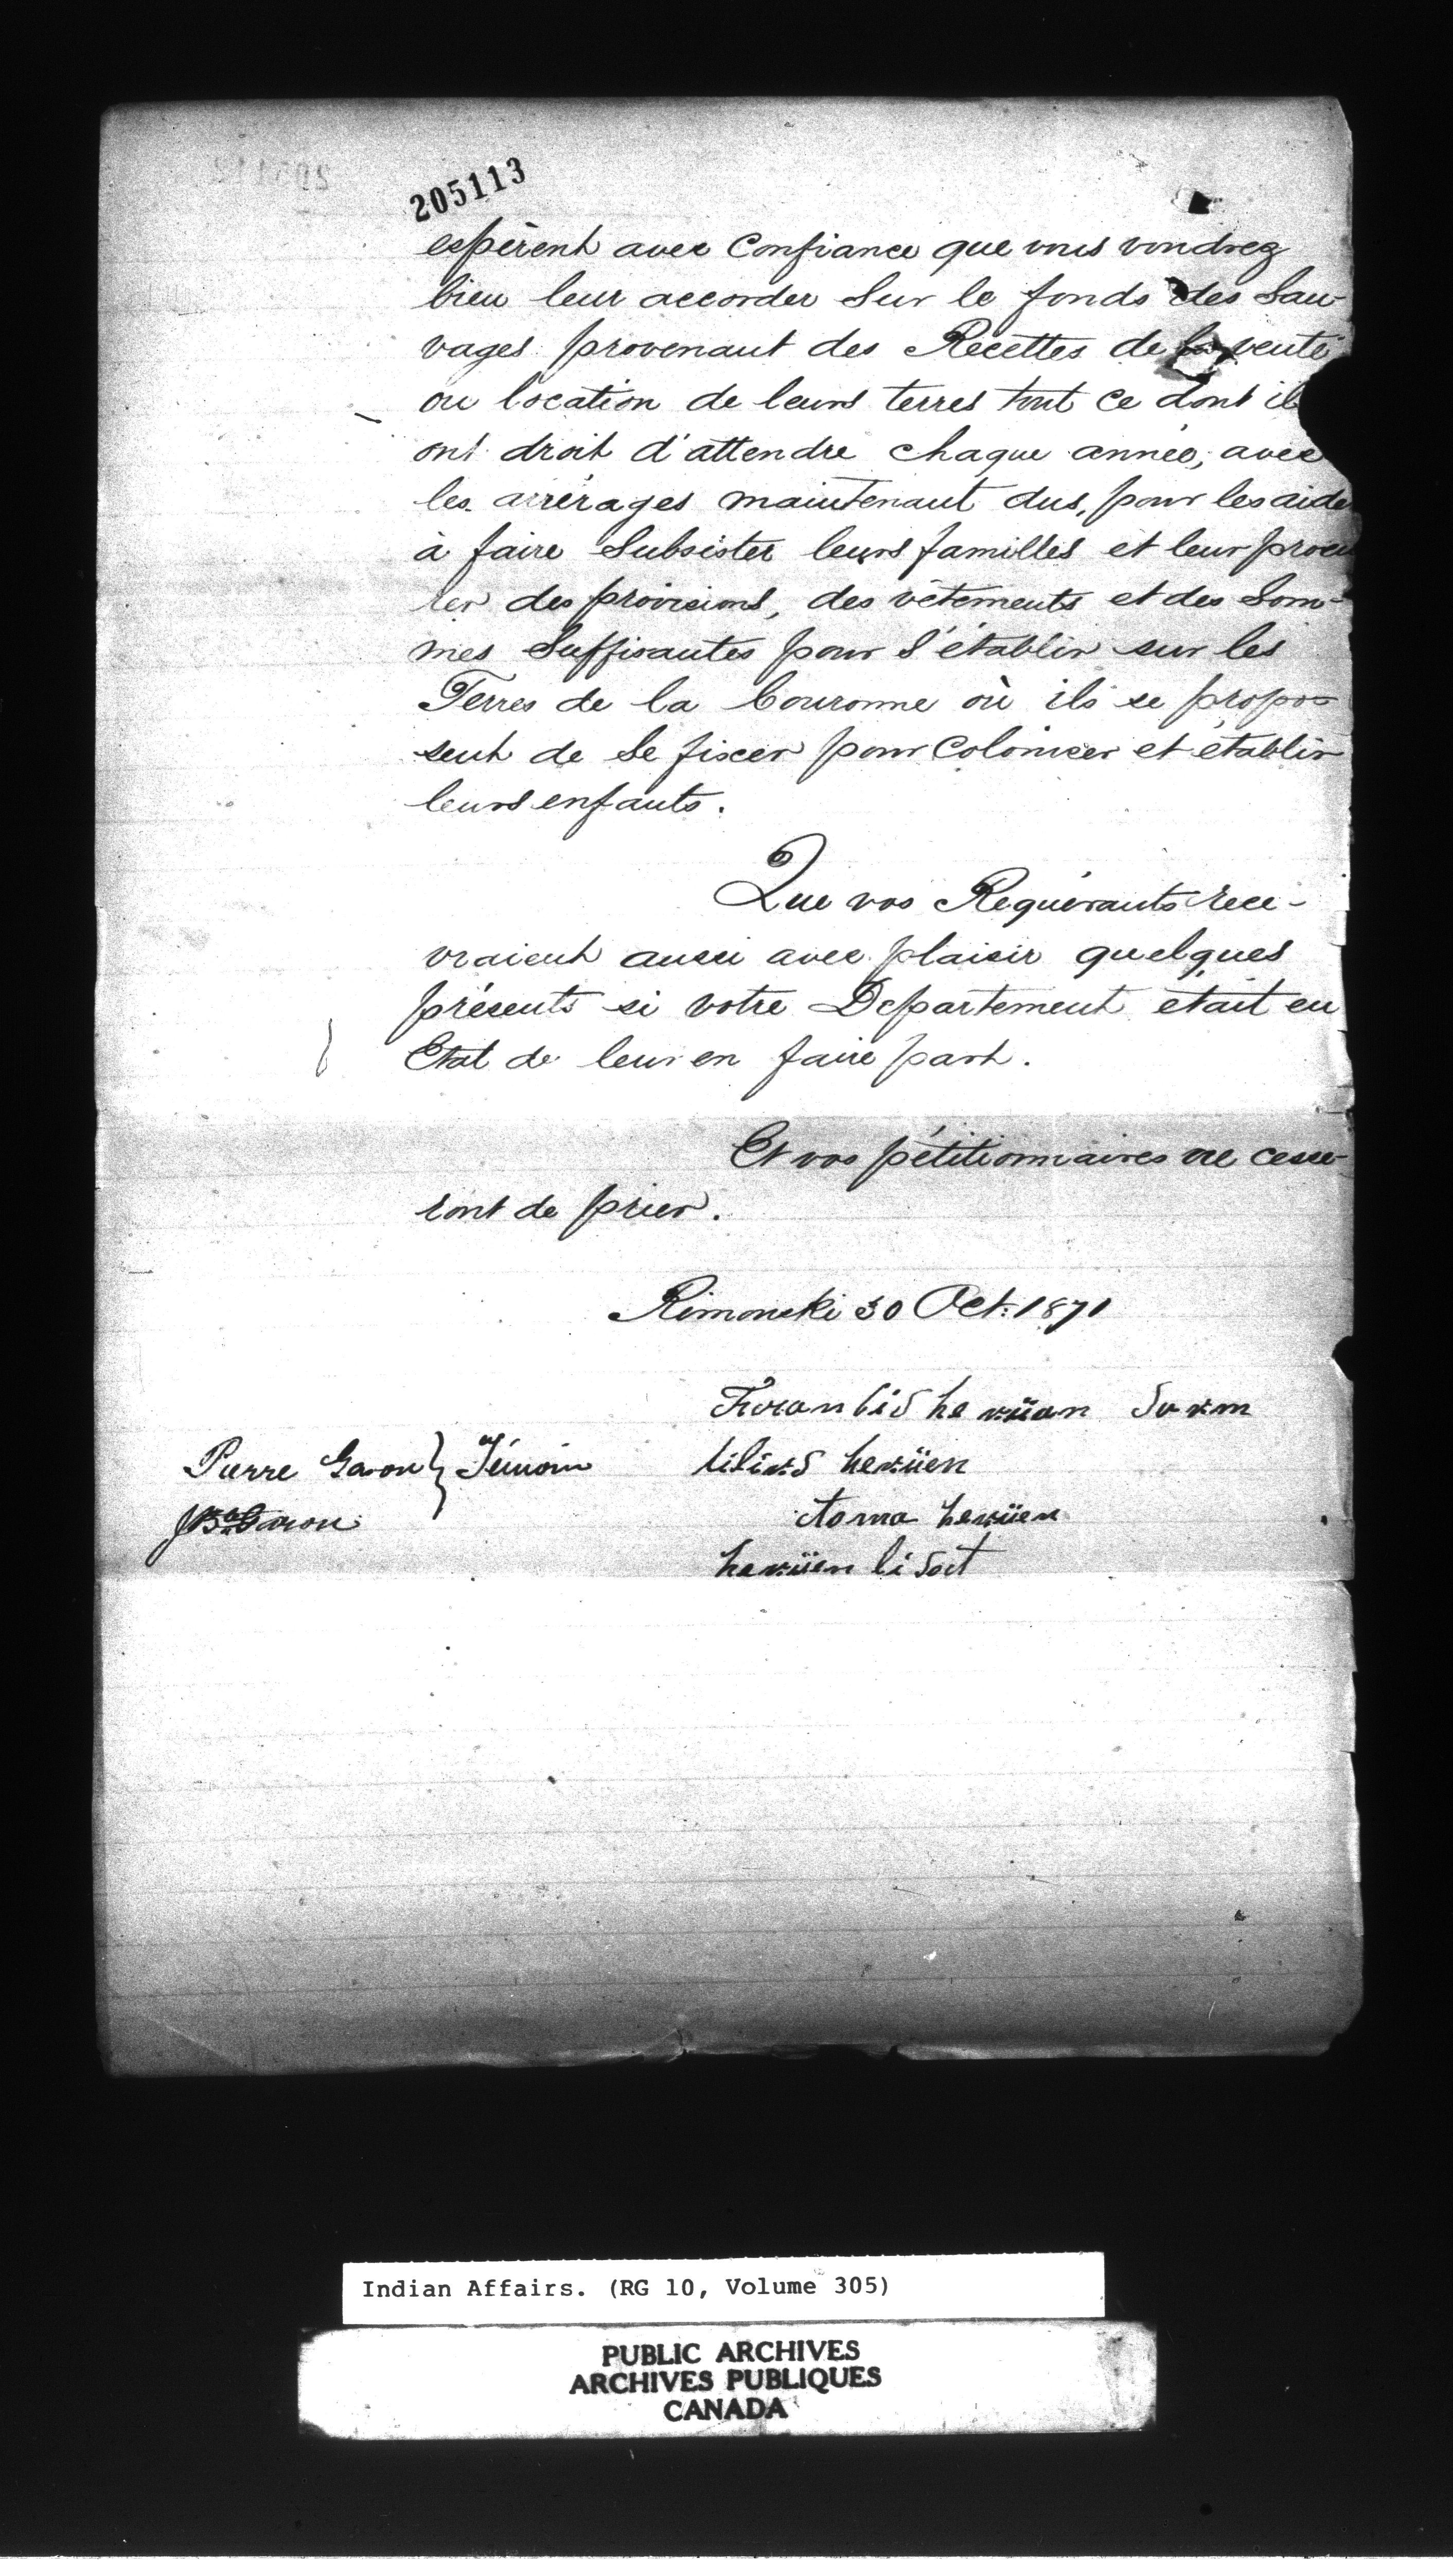 205113
espèrent avec Confiance que vous voudrez
bien leur accorder Sur le fonds des Sau-
vages provenant des Recettes de la vente
ou location de leurs terres tout ce dont il
ont droit d'attendre chaque année, avec
les arrérages maintenant dus, pour les aide
à faire Subsister leurs familles et leur procu
rer des provisions, des vêtements et des Som-
mes Suffisantes pour S'établir sur les
Terres de la Couronne où ils se propo-
sent de Se fixer pour Coloniser et établir
leurs enfants.
Que vos Requérants rece-
vraient aussi avec plaisir quelques
présents si votre Département était en
Etat de leur en faire part.
Et vos pétitionnaires ne cesse-
ront de prier.
Rimouski 30 Oct. 1871
Pierre Garon } Témoin
toma
Indian Affairs. (RG 10, Volume 305)
PUBLIC ARCHIVES
ARCHIVES PUBLIQUES
CANADA